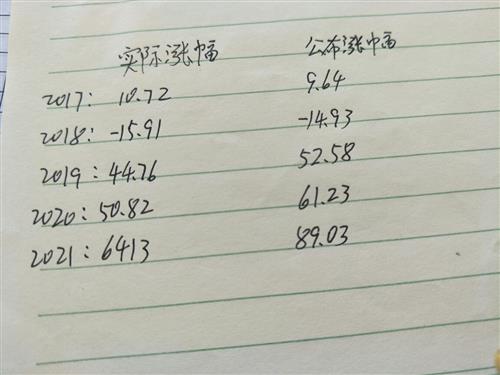 实际涨幅 公布涨幅
2017: 10.72 9.64
2018: -15.91 -14.93
2019: 44.76 52.58
2020: 50.82 61.23
2021: 6413 89.03